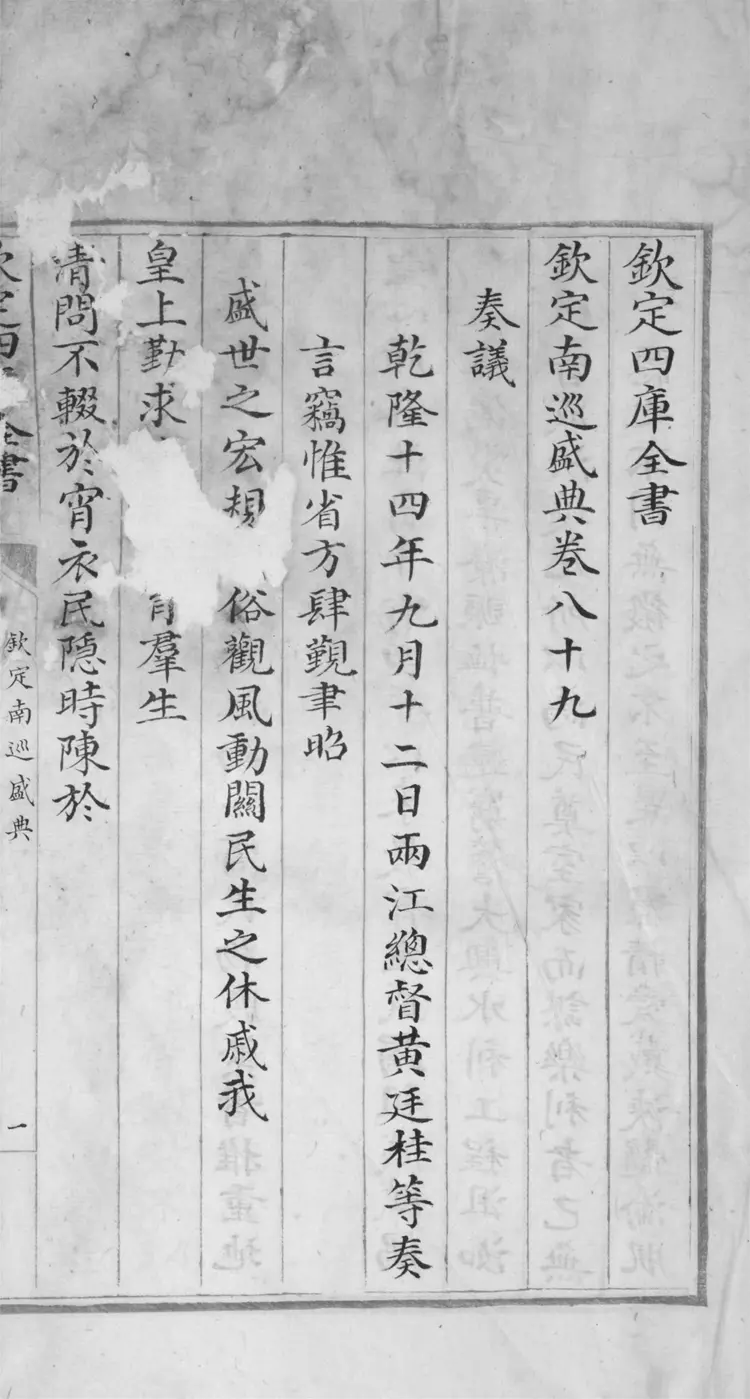 欽定四庫全書
欽定南巡盛典卷八十九
奏議
乾隆十四年九月十二日兩江總督黃廷桂等奏
言竊惟省方肆覲聿昭
盛世之宏規俗觀風動關民生之休戚我
皇上勤求羣生
清問不輟於宵衣民隱時陳於
欽定四全書
欽定南巡盛典
一